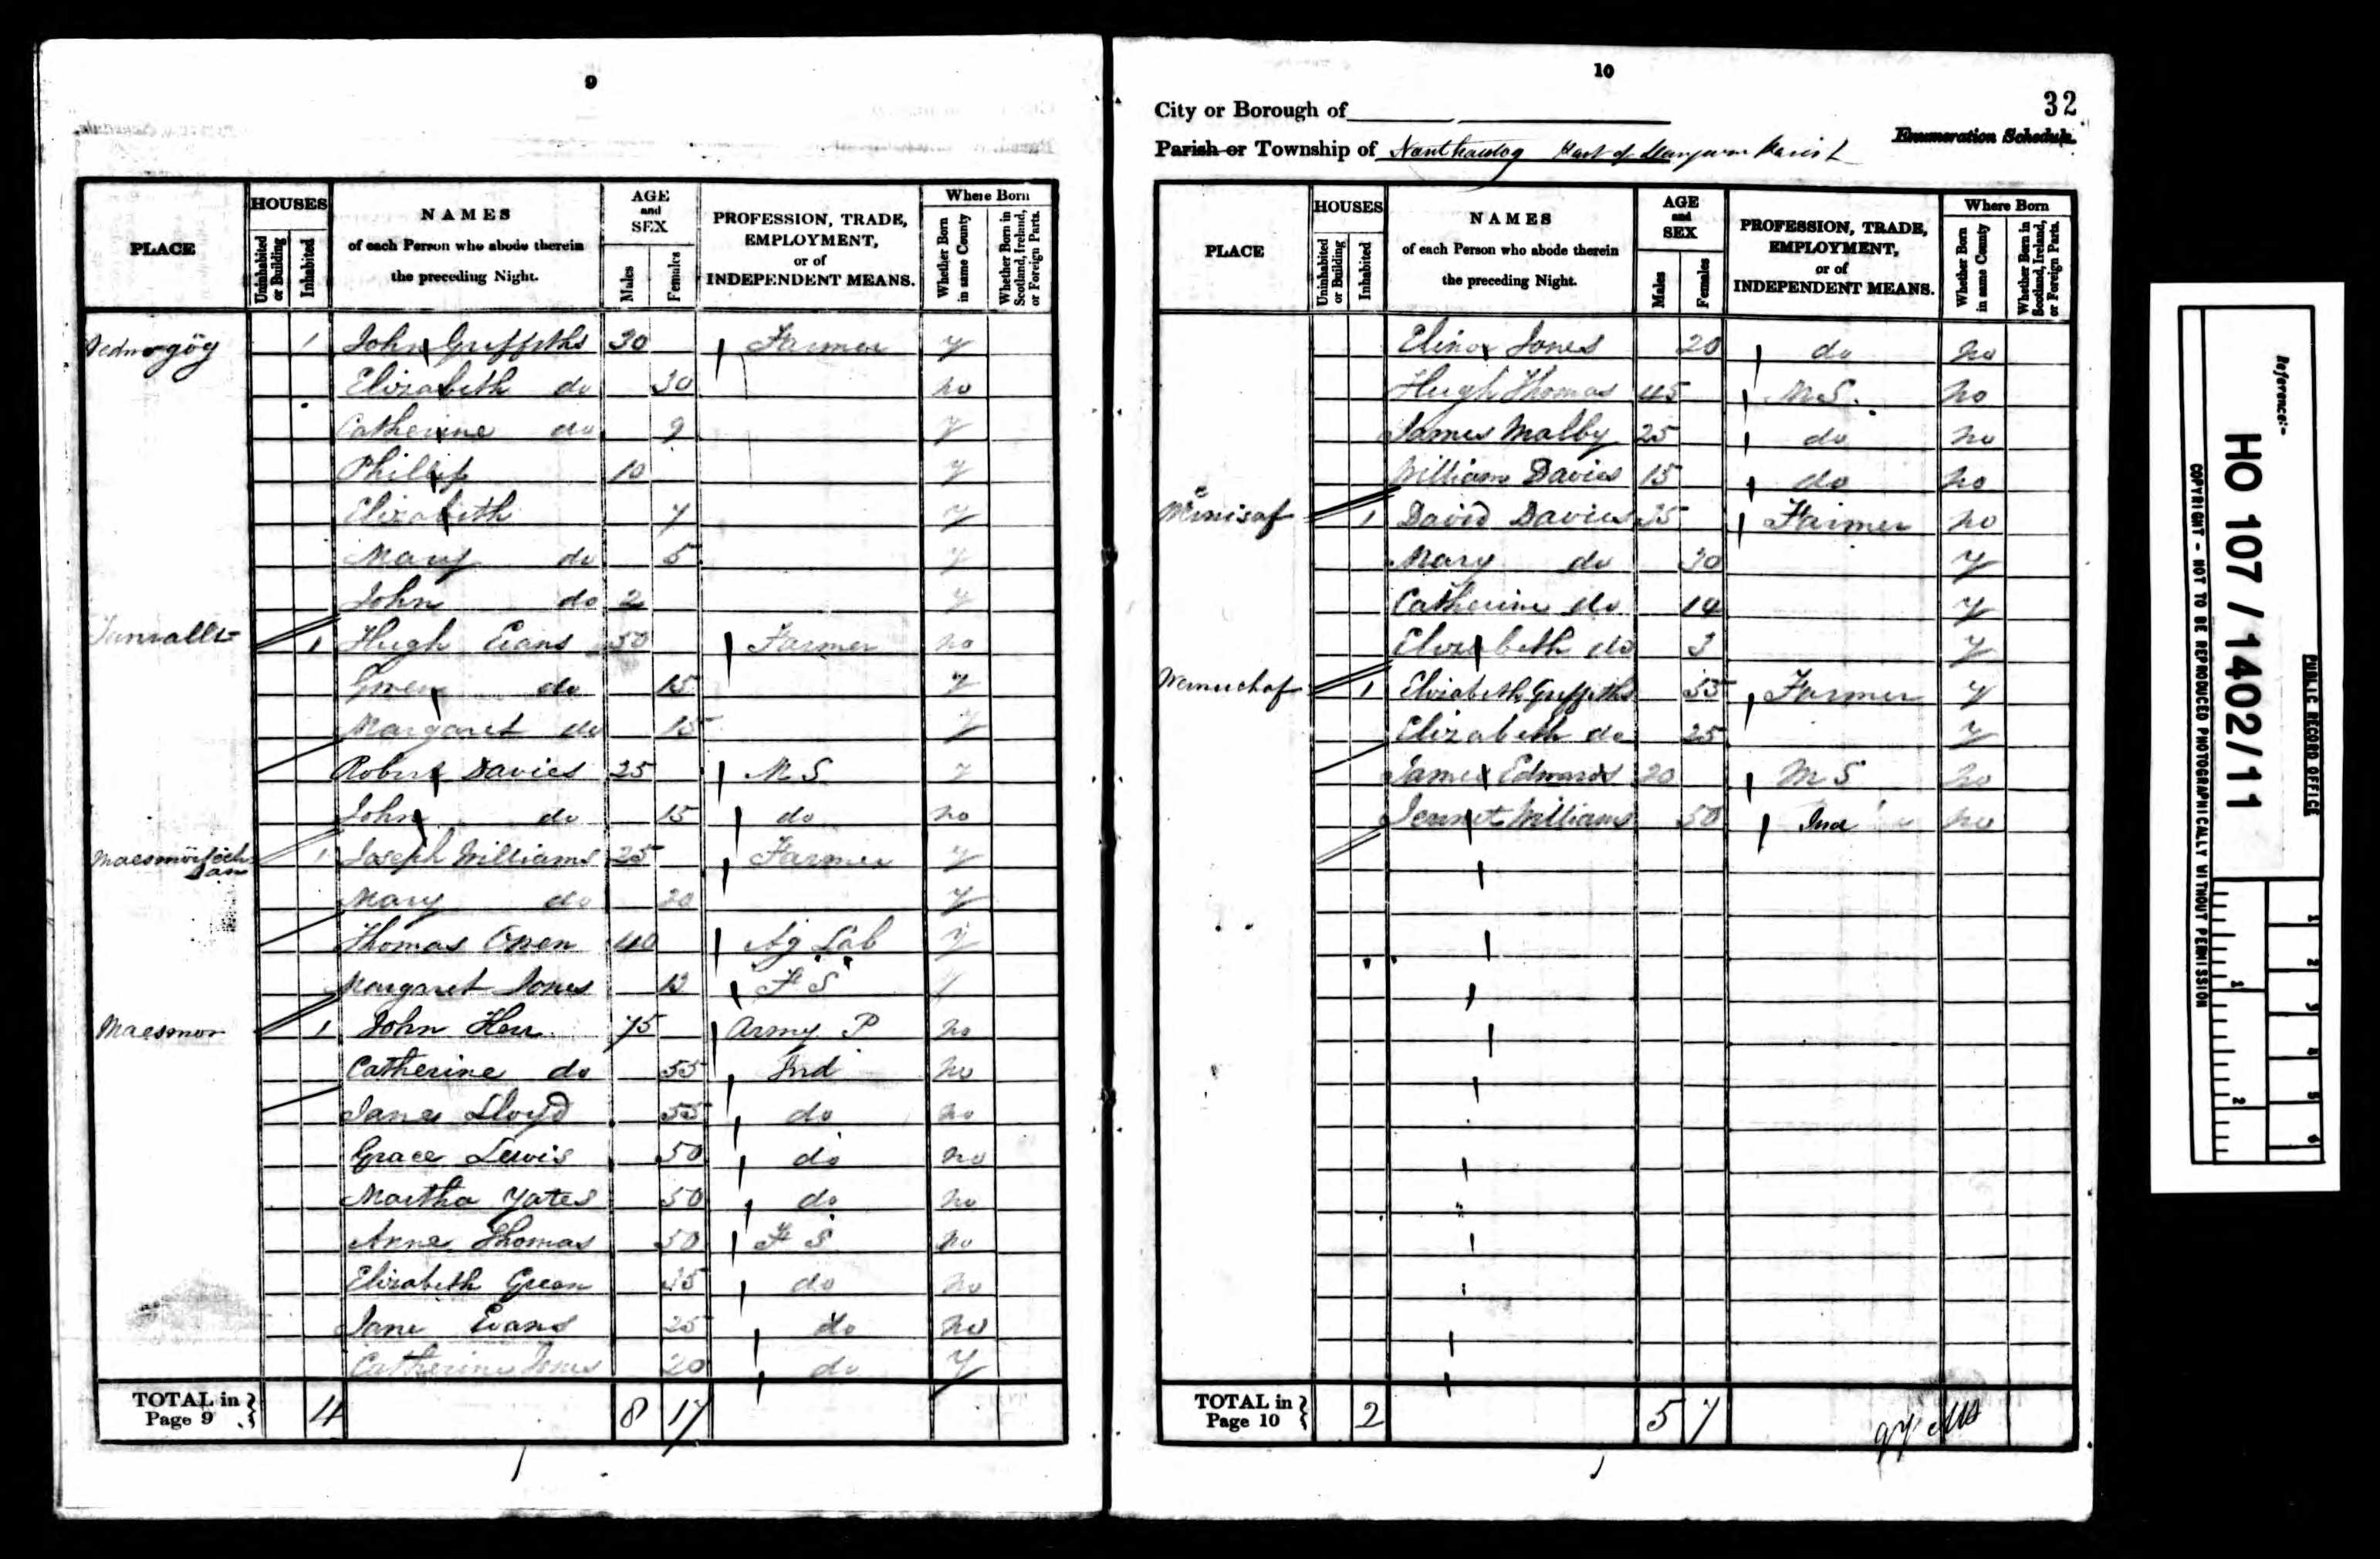 9
PLACE
HOUSES
Uninhabited or Building
Inhabited
NAMES
of each Person who abode therein
the preceding Night.
AGE
and
SEX
Males
Females
PROFESSION, TRADE,
EMPLOYMENT,
or of
INDEPENDENT MEANS.
Where Born
Whether Born in same County
Whether Born in Scotland, Ireland, or Foreign Parts.
1 John Griffiths 30 Farmer y
Elizabeth do 30 no
Catherine do 9 y
Phillip 10 y
Elizabeth 7 y
Mary do 5 y
John do 2 y
1 Hugh Evans 50 Farmer no
Gwen do 15 y
Margaret do 15 y
Robert Davies 25 M S y
John do 15 do no
1 Joseph Williams 25 Farmer y
Mary do 20 y
Thomas Owen 40 Ag Lab y
Margaret Jones 13 F S
Maesmor 1 John Kerr 75 Army P no
Catherine do 55 Ind no
Jane Lloyd 55 do no
Grace Lewis 50 do no
Martha Yates 50 do no
Anne Thomas 50 F S no
Elizabeth Green 35 do no
Jane Evans 25 do no
Catherine Jones 20 do y
TOTAL in
Page 9 4 8 17
10
32
City or Borough of
Enumeration Schedule.
Parish or Township of Part of Parish
PLACE
HOUSES
Uninhabited or Building
Inhabited
NAMES
of each Person who abode therein
the preceding Night.
AGE
and
SEX
Males
Females
PROFESSION, TRADE,
EMPLOYMENT,
or of
INDEPENDENT MEANS.
Where Born
Whether Born in same County
Whether Born in Scotland, Ireland, or Foreign Parts.
Elinor Jones 20 do no
Hugh Thomas 45 M S. no
James Malby 25 do no
William Davies 15 do no
1 David Davies 35 Farmer no
Mary do 30 y
Catherine do 14 y
Elizabeth do 3 y
1 Elizabeth Griffiths 55 Farmer y
Elizabeth do 25 y
James Edwards 20 M S no
Jennet Williams 50 Ind no
TOTAL in
Page 10 2 5 7
Reference:-
HO 107 / 1402/11
PUBLIC RECORD OFFICE
COPYRIGHT - NOT TO BE REPRODUCED PHOTOGRAPHICALLY WITHOUT PERMISSION
1 2 3 4 5 6
1 2